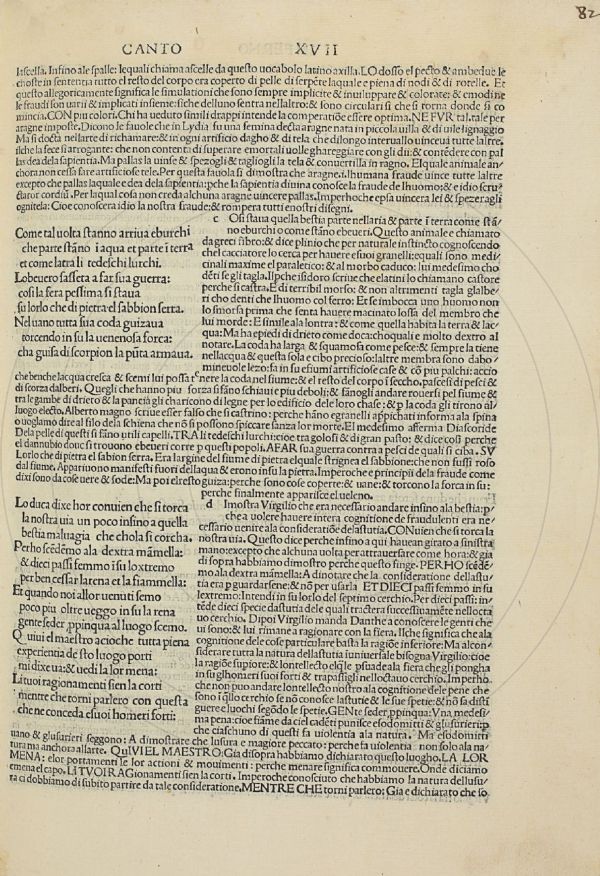 82
CANTO XVII
lascella. Infino ale spalle: lequali chiama ascelle da questo uocabolo latino axilla. LO dosso el pecto & ambedue le
choste in sententia tutto el resto del corpo era coperto di pelle di serpēte laquale e piena di nodi & di rotelle. Et
questo allegoricamente significa le simulationi che sono sempre implicite & inuiluppate & colorate: & cosi dine
le fraudi son uarii & implicati insieme: siche delluno sentra nellaltro: & sono circulari si che si torna donde si co
mincia. CON piu colori. Chi ha ueduto simili drappi intende la comperatiōe essere optima. NE FVR tal. tale per
aragne imposte. Dicono le fauole che in Lydia fu una femina docta aragne nata in piccola uilla & di uile lignaggio
Ma si docta nellarte di richamare: & in ogni artificio dagho & di tela che dilongo interuallo uinceua tutte laltre.
ilche la fece si arrogante: che non contenta di superare e mortali uolle ghareggiare con gli dii: & contēdere con pal
las dea dela sapientia. Ma pallas la uinse & spezogli & tagliogli la tela & conuertilla in ragno. Elquale animale an
chora non cessa fare artificiose tele. Per questa fauola si dimostra che aragne. i. lhumana fraude uince tutte laltre
excepto che pallas laquale e dea dela sapientia: pche la sapientia diuina conosce la fraude de lhuomo: & e idio scru
tator cordiū. Per laqual cosa non creda alchuna aragne uincere pallas. Imperhoche epsa uincera lei & spezeragli
ognitela: Cioe conoscera idio la nostra fraude: & rompera tutti nostri disegni.
Come tal uolta stanno arriua eburchi
che parte stāno ī aqua et parte ī terra
et come latra li tedeschi lurchi.
Lo beuero sasseta a far sua guerra:
cosi la fera pessima si staua
su lorlo che di pietra el sabbion serra.
Nel uano tutta sua coda guizaua
torcendo in su la uenenosa forca:
cha guisa di scorpion la pūta armaua.
c Osi staua quella bestia parte nellaria & parte ī terra come stā/
no eburchi o come stāno ebeueri. Questo animale e chiamato
da greci fibro: & dice plinio che per naturale instincto cognoscendo
chel cacciatore lo cerca per hauere e suoi granelli: equali sono medi/
cinali maxime el paraletico: & al morbo caduco: lui medesimo cho
dēti se gli tagla. Ilpche isidoro scriue che elatini lo chiamano castore
perche si castra. E di terribil morso: & non altrimenti tagla glalbe/
ri cho denti che lhuomo col ferro: Et se imbocca uno huomo non
lo smorsa prima che senta hauere macinato lossa del membro che
lui morde: E simile ala lontra: & come quella habita la terra & lac/
qua: Ma ha epiedi di drieto come doca: choquali e molto dextro al
notare. La coda ha larga & squamosa come pesce: & sempre la tiene
nellacqua & questa sola e cibo precioso: laltre membra sono dabo/
mineuole lezo: fa in su esumi artificiose case & cō piu palchi: accio
che benche lacqua cresca & scemi lui possa tenere la coda nel fiume: & el resto del corpo ī secco. pascesi di pesci &
di scorza dalberi. Quegli che hanno piu forza si fāno schiaui e piu deboli: & fanogli andare rouersi pel fiume &
tra le gambe di drieto & la pancia gli charicono di legne per lo edificio dele loro chase: & p la coda gli tirono al/
luogo electo. Alberto magno scriue esser falso che si castrino: perche hāno egranelli appichati informa ala spina
o uogliamo dire al filo dela schiena che nō si possono spiccare sanza lor morte. El medesimo afferma Diascoride
Dela pelle di questi si fāno utili capelli. TRA li tedeschi lurchi: cioe tra golosi & di gran pasto: & dice cosi perche
el dannubio douc si trouono ebeueri corre p questa popoli. A FAR sua guerra contra a pesci de quali si ciba. SV
Lorlo che di pietra el sabion serra. Era la largine del fiume di pietra elquale strignea el sabbione: che non fussi roso
dal fiume. Appariuono manifesti fuori dellaqua & erono in su la pietra. Imperhoe e principii dela fraude come
dixi sono da cose uere & sode: Ma poi el resto guiza: perche sono cose coperte: & uane: & torcono la forca in su:
perche finalmente apparisce el ueleno.
Lo duca dixe hor conuien che si torca
la nostra uia un poco infino a quella
bestia maluagia che chola si corcha.
Perho scēdēmo ala dextra māmella:
& dieci passi femmo ī su lo extremo
per ben cessar la rena et la fiammella:
Et quando noi allor uenuti semo
poco piu oltre ueggo in su la rena
gente seder ppinqua al luogo scemo.
Quiui el maestro accioche tutta piena
experientia de sto luogo porti
mi dixe ua: & uedi la lor mena:
Li tuoi ragionamenti sien la corti
mentre che torni parlero con questa
che ne conceda e suoi homeri forti:
d Imostra Virgilio che era necessario andare infino ala bestia: p/
che a uolere hauere intera cognitione de fraudulenti era ne/
cessario uenire ala consideratiōe dela astutia. CONuien che si torca la
nostra uia. Questo dice perche infino a qui haueuan girato a sinistra
mano: excepto che alchuna uolta per attrauersare come hora: & gia
di sopra habbiamo dimostro perche questo finge. PERHO scēdē/
mo ala dextra māmella: A dinotare che la consideratione dellastu/
tia era p guardarsene: & nō per usarla ET DIECI passi femmo in su
lextremo: Intendi in su lorlo del septimo cerchio. Per dieci passi: in/
tēde dieci specie dastutia dele quali tractera successiuamēte nellocta
uo cerchio. Dipoi Virgilio manda Danthe a conoscere le genti che
ui sono: & lui rimane a ragionare con la fiera. Ilche significa che ala
cognitione dele cose particulare basta la ragiōe inferiore: Ma a con/
siderare tutta la natura dellastutia ī uniuersale bisogna Virgilio: cioe
la ragiōe supiore: & lontellecto elq̄le psuade ala fiera che gli pongha
in su glhomeri suoi forti & trapassigli nelloctauo cerchio. Imperho
che non puo andare lontellecto nostro ala cognitione dele pene che
sono ī q̄llo cerchio se nō conosce lastutie & le sue spetie: & nō fa disti
guere e luochi segōdo le spetie. GENte seder. ppinqua: Vna medesi/
ma pena: cioe fiāme da ciel cadēti punisce e sodomitti & glusurieri: p
che ciaschuno di questi fa uiolentia ala natura. Ma e sodomitti
uano & glusurieri seggono: A dimostrare che lusura e magiore peccato: perche fa uiolentia non solo ala na/
tura ma anchora allarte. QuIVI EL MAESTRO: Gia disopra habbiamo dichiarato questo luogho. LA LOR
MENA: elor portamenti & le lor actioni & mouimenti: perche menare significa commouere. Onde diciamo
e mena el capo. LI TVOI RAGionamenti sien la corti. Imperoche conosciuto che habbiamo la natura dellusu/
ra ci dobbiamo di subito partire da tale consideratione. MENTRE CHE torni parlero: Gia e dichiarato che so